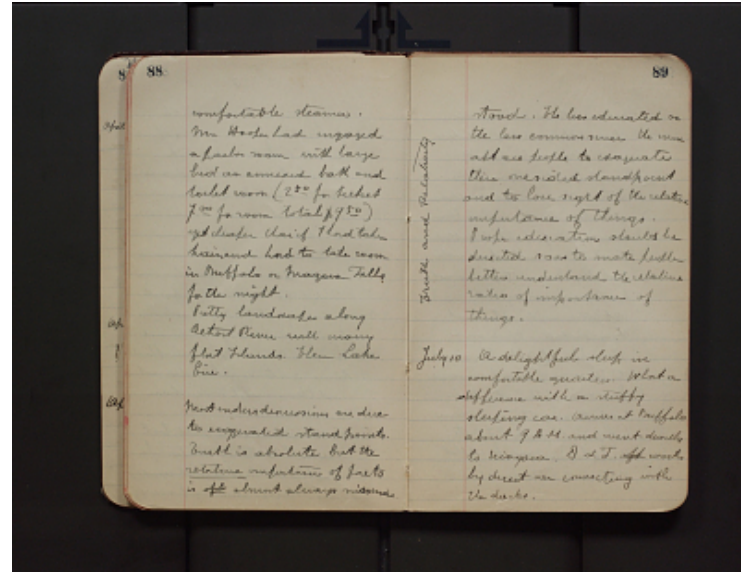 88
comfortable steamer.
Mr Hooper had engaged
a parlor room with large
bed an annexed bath and
toilet room (2 50 for ticket
7 00 for room total $9 50)
yet cheaper than if I had taken
train and had to take room
in Buffalo or Niagara Falls
for the night.
Pretty landscapes along
Detroit River with many
flat Islands. Then Lake
Erie.
Most misunderstandings are due
to exaggerated standpoints.
Truth is absolute but the
relative importance of facts
is oft almost always misunder
89
Truth and Relativity
stood. The less educated or
the less common sense the more
apt are people to exaggerate
their one sided standpoint
and to lose sight of the relative
importance of things.
Proper education should be
directed so as to make people
better understand the relative
ratio of importance of
things.
July 10 A delightful sleep in
comfortable quarters. What a
difference with a stuffy
sleeping car. Arrived at Buffalo
about 9 A.M. and went directly
to Niagara. D &
by direct car connecting with
the docks.